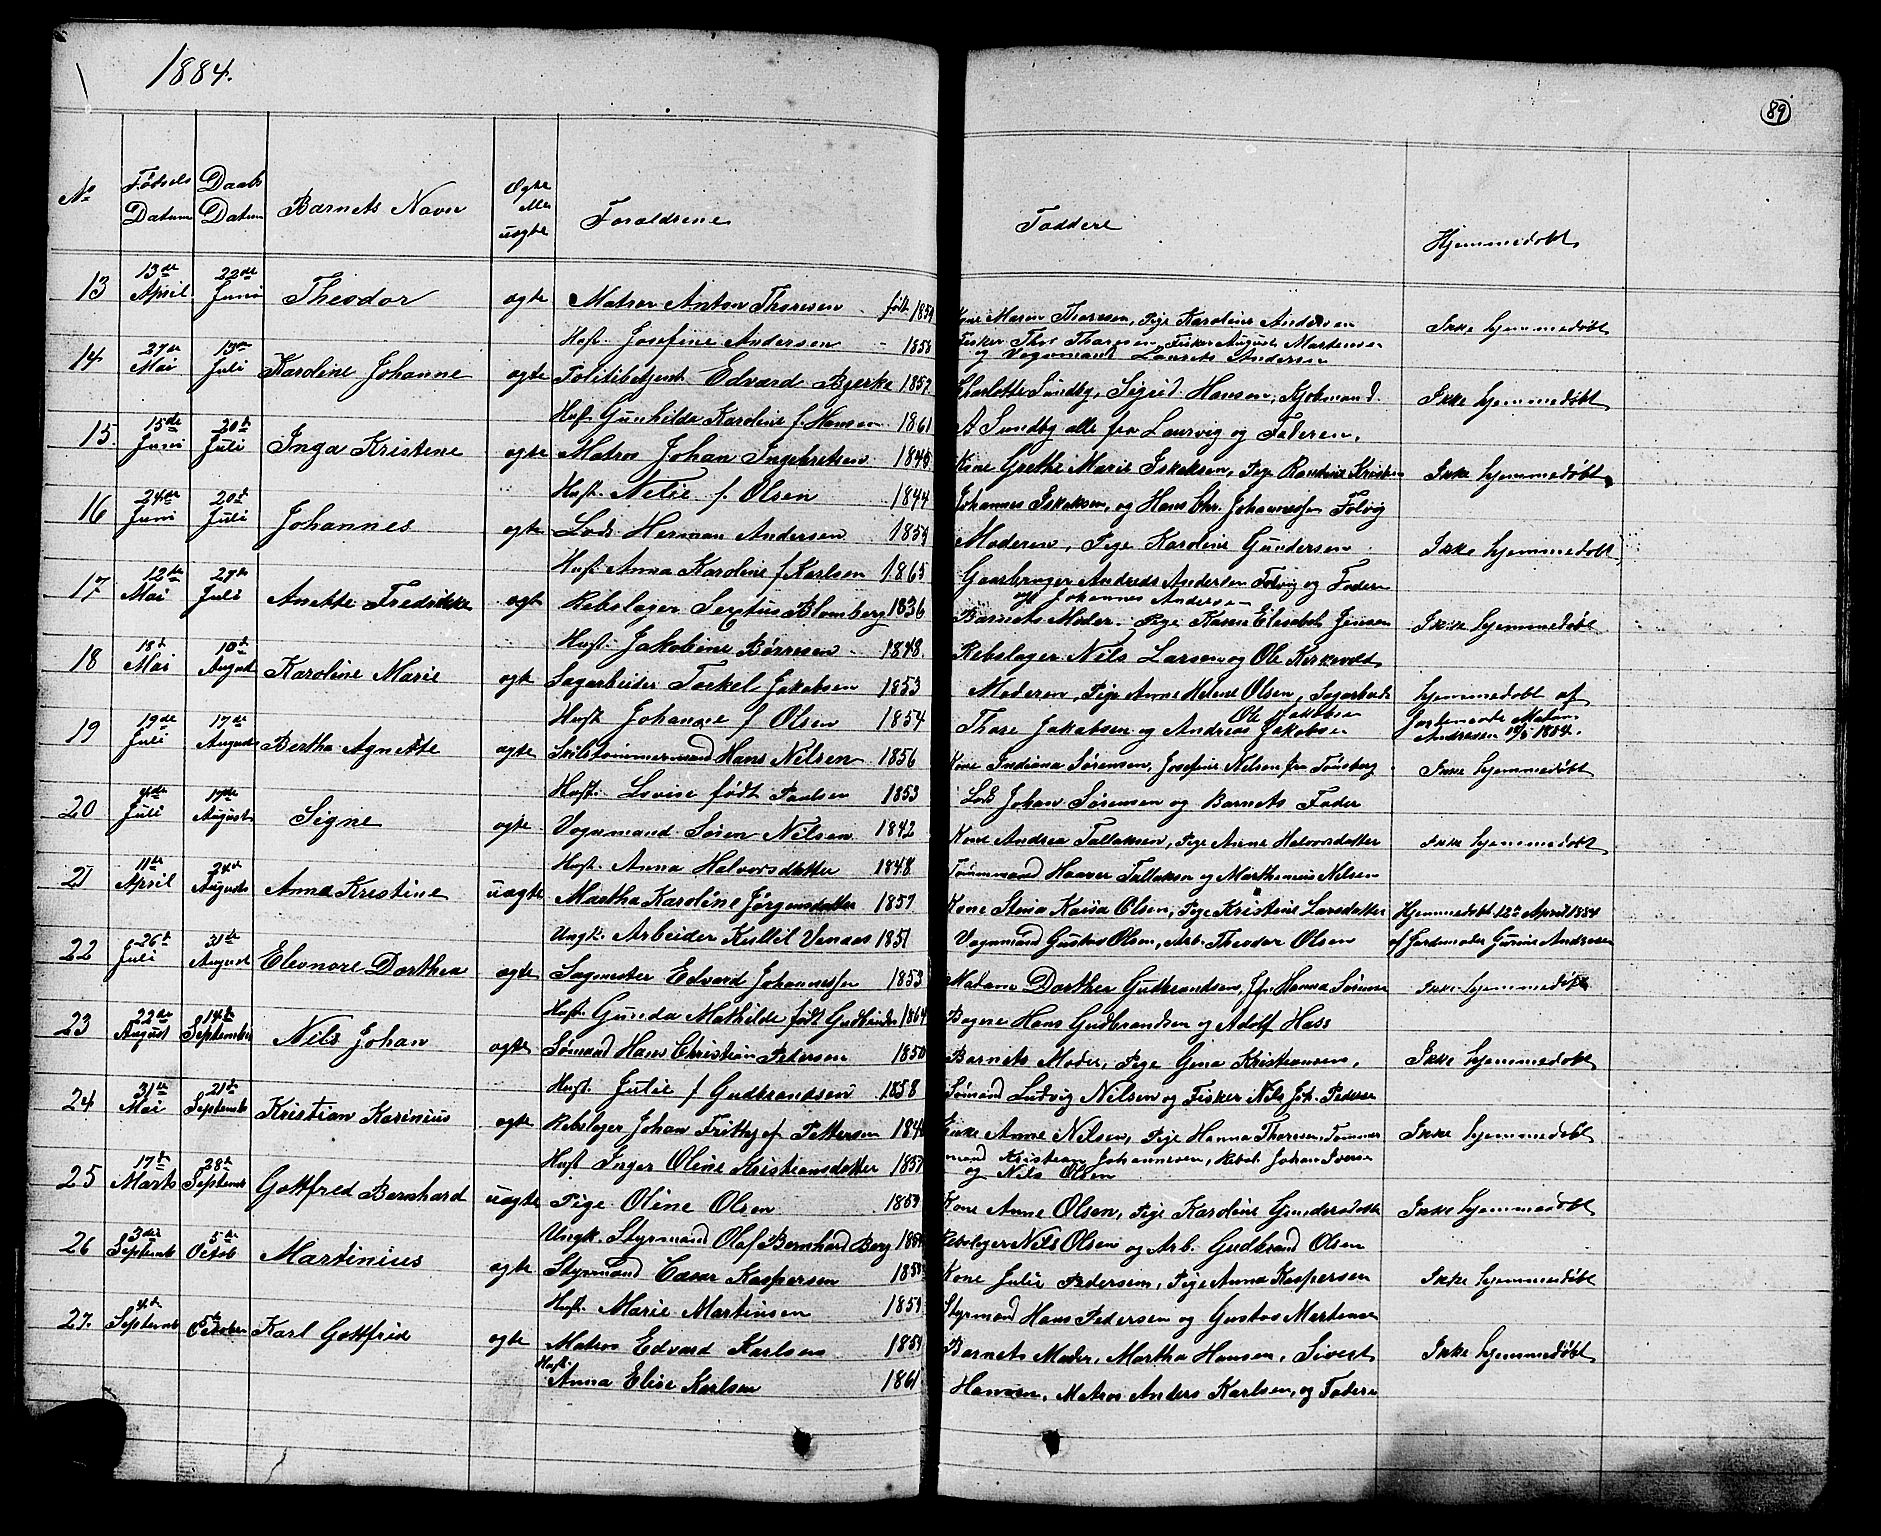 1884.
89
No Fødsels Datum Daabs Datum Barnets Navn Ægte eller uægte Forældrene Faddere Hjemmedøbt
13 13de April 22de Juni Theodor ægte Matros Anton Thoresen født 1859 Kone Maren Thoresen, Pige Karoline Andersen Ikke hjemmedøbt
Hust. Josefine Andersen 1858 Fisker Thor Thoresen, Fisker August Martensen og Vognmand Laurets Andersen
14 27de Mai 13de Juli Karoline Johanne ægte Politibetjent Edvard Bjerke 1857 Charlotte Sundby, Sigrid Hansen, Kjøbmand Ikke hjemmedøbt
Hust Gunhilda Karoline f. Hansen 1861 A Sundby alle fra Laurvig og Faderen.
15. 15de Juni 20de Juli Inga Kristine ægte Matros Johan Ingebretsen 1845 Kone Grethe Marie Iskaksen, Pige Ikke hjemmedøbt
Hust. Netie f. Olsen 1844 Johannes Iskaksen, og Hans Chr. Johannessen Folvig
16 24de Juni 20de Juli Johannes ægte Lods Herman Andersen 1859 Moderen, Pige Karoline Gundersen Ikke hjemmedøbt
Hust Anna Karoline f Karlsen 1865 Gaarbruger Andreas Andersen Folvig og Faderen og Johannes Andersen
17 12te Mai 27de Juli Anette Fredrikke ægte Rebslager Sextus Blomberg 1836 Barnets Moder, Pige Karen Elisabet Jensen Ikke hjemmedøbt
Hust. Jakobine Børresen 1848. Rebslager Nils Larsen og Ole Kirkevold
18 18de Mai 10de August Karoline Marie ægte Sagarbeider Torkel Jakobsen 1853 Moderen, Pige Anne Helene Olsen, Sagarbeider hjemmedøbt af
Hust Johanne f Olsen 1854 Thore Jakobsen og Andreas Jakobsen Ole Jakobsen Jordemoder Madam Andresen 1884.
19 19de Juli 17de August Bertha Agnette ægte Skibstømmermand Hans Nilsen 1856 Kone Indiana Sørensen, Josefine Nilsen fra Tønsberg Ikke hjemmedøbt
Hust. Lovise født Paulsen 1853 Lods Johan Sørensen og Barnets Fader
20 4de Juli 17de August Signe ægte Vognmand Søren Nilsen 1842 Kone Andrea Tallaksen, Pige Anne Halvorsdatter Ikke hjemmedøbt
Hust. Anna Halvorsdatter 1848 Tømmermand Haaver Tallaksen og Marthenius Nilsen
21 11de April 24de August Anna Kristine uægte Martha Karoline Jørgensdatter 1857 Kone Stina Kaisa Olsen, Pige Kristine Larsdatter Hjemmedøbt 12te April 1884
Ungk. Arbeider Kittil Venaas 1851 Vognmand Gustav Olsen, Arb. Theodor Olsen af Jordemoder Gurine Andresen
22 26de Juli 31te August Eleonore Dorthea ægte Sagmester Edvard Johannessen 1853 Madam Dorthea Gudbrandsen, Jfr. Hanna Sørensen Ikke hjemmedøbt
Hust. Gunda Mathilde født Gudbrandsen 1864 Bagere Hans Gudbrandsen og Adolf Hass
23 22de August 14de September Nils Johan ægte Sømand Hans Christian Petersen 1850 Barnets Moder, Pige Gina Kristiansen, Ikke hjemmedøbt
Hust Julie f Gudbrandsen 1858 Sømand Ludvig Nilsen og Fisker Nils Joh. Pedersen
24 31te Mai 21de September Kristian Karinius ægte Rebslager Johan Frithjof Pettersen Enke Anne Nilsen, Pige Hanna Thoresen, Tømmer Ikke hjemmedøbt
Hust Inger Oline Kristiansdatter 1857 mand Kristian Johannesen, Rebsl. Johan Iversen og Nils Olsen
25 17de Marts 28de September Gottfred Bernhard uægte Pige Oline Olsen 1859 Kone Anne Olsen, Pige Karoline Gundersdatter Ikke hjemmedøbt
Ungk. Styrmand Olaf Bernhard Berg Rebslager Nils Olsen og Arb. Gudbrand Olsen
26 3die September 5te Octob Martinius ægte Styrmand Casar Kaspersen Kone Julie Pedersen, Pige Anna Kaspersen Ikke hjemmedøbt
Hust. Marie Martinsen 1859 Styrmand Hans Pedersen og Gustav Martensen
27. 4de September 5te October Karl Gottfrid ægte Matros Edvard Karlsen 1859 Barnets Moder, Martha Hansen, Sivert Ikke hjemmedøbt
Hust. Anna Elise Karlsen 1861 Hansen, Matros Anders Karlsen, og Faderen